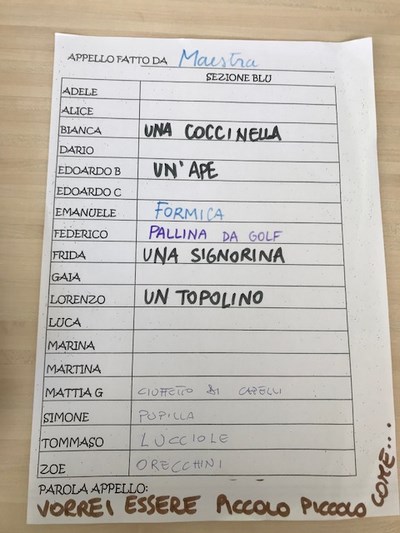 APPELLO FATTO DA Maestra
SEZIONE BLU
ADELE
ALICE
BIANCA UNA COCCINELLA
DARIO
EDOARDO B UN'APE
EDOARDO C
EMANUELE FORMICA
FEDERICO PALLINA DA GOLF
FRIDA UNA SIGNORINA
GAIA
LORENZO UN TOPOLINO
LUCA
MARINA
MARTINA
MATTIA G CIUFFETTO DI CAPELLI
SIMONE PUPILLA
TOMMASO LUCCIOLE
ZOE ORECCHINI
PAROLA APPELLO:
VORREI ESSERE PICCOLO PICCOLO COME...